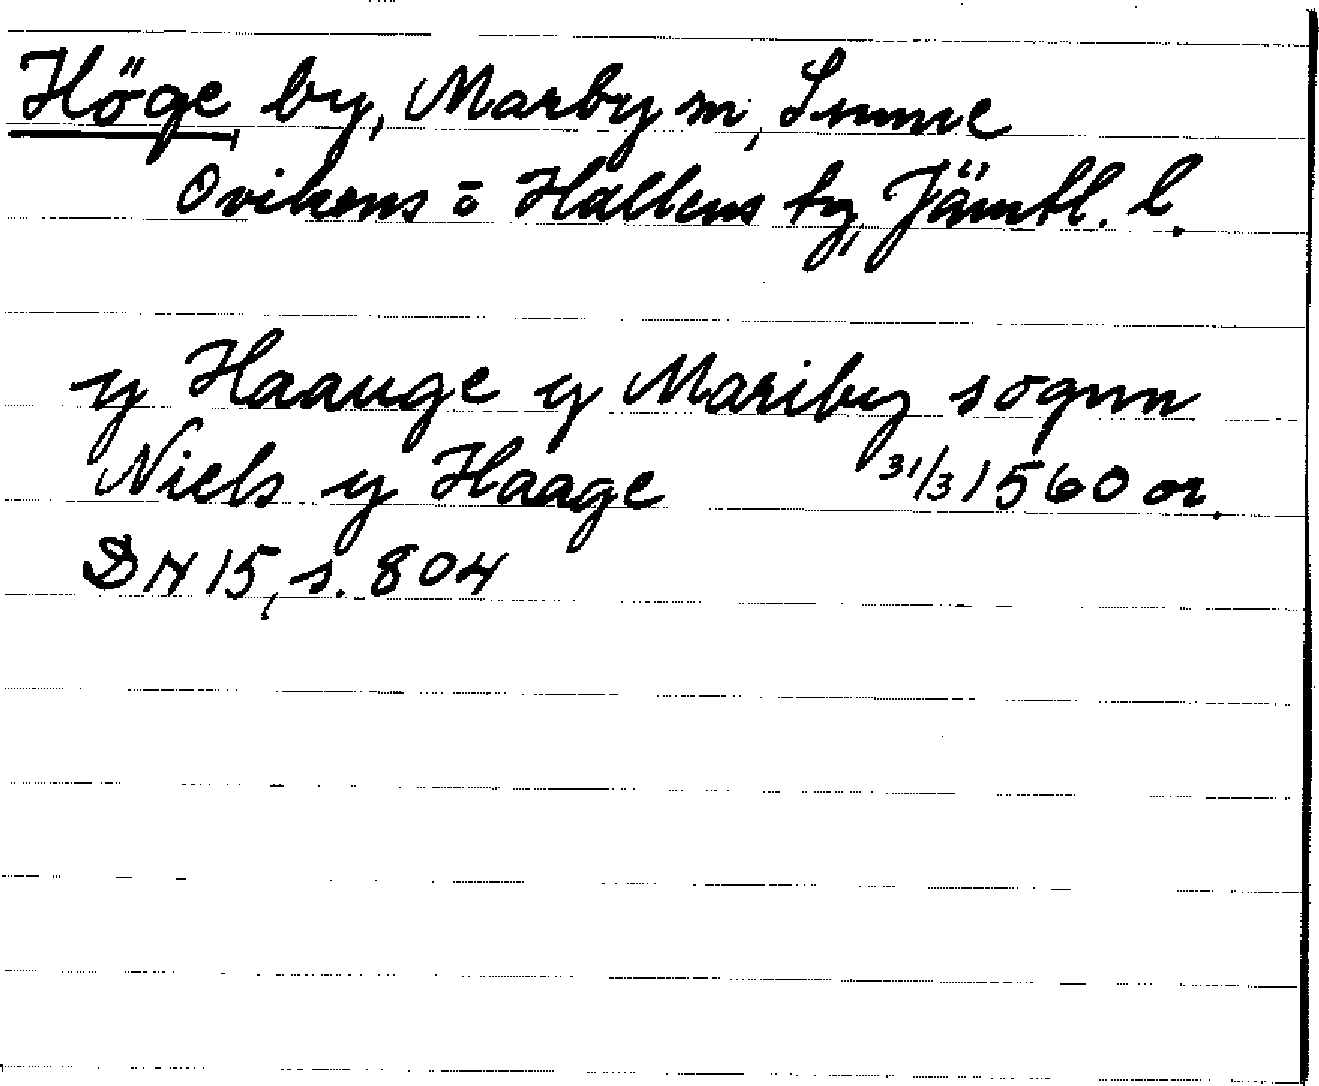 Höge by, Marby sn, Sunne
Ovikens o Hallens tg, Jämtl. l.
y Haauge y Mariby sognn
Niels y Haage 31/3 1560 or.
DN 15, s. 804